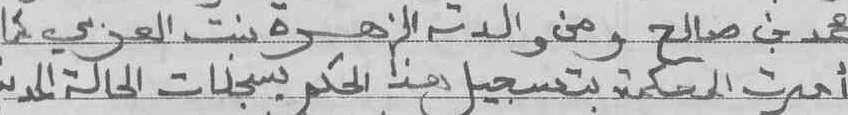 محمد بن صالح ومن والدته الزهرة بنت العربي كما
أمرت المحكمة بتسجيل هذا الحكم بسجلات الحالة المدنية